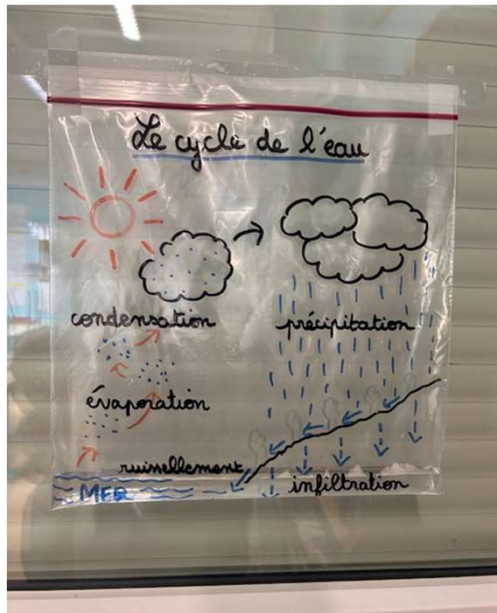 Le cycle de l'eau
condensation
précipitation
évaporation
ruissellement
MER
infiltration